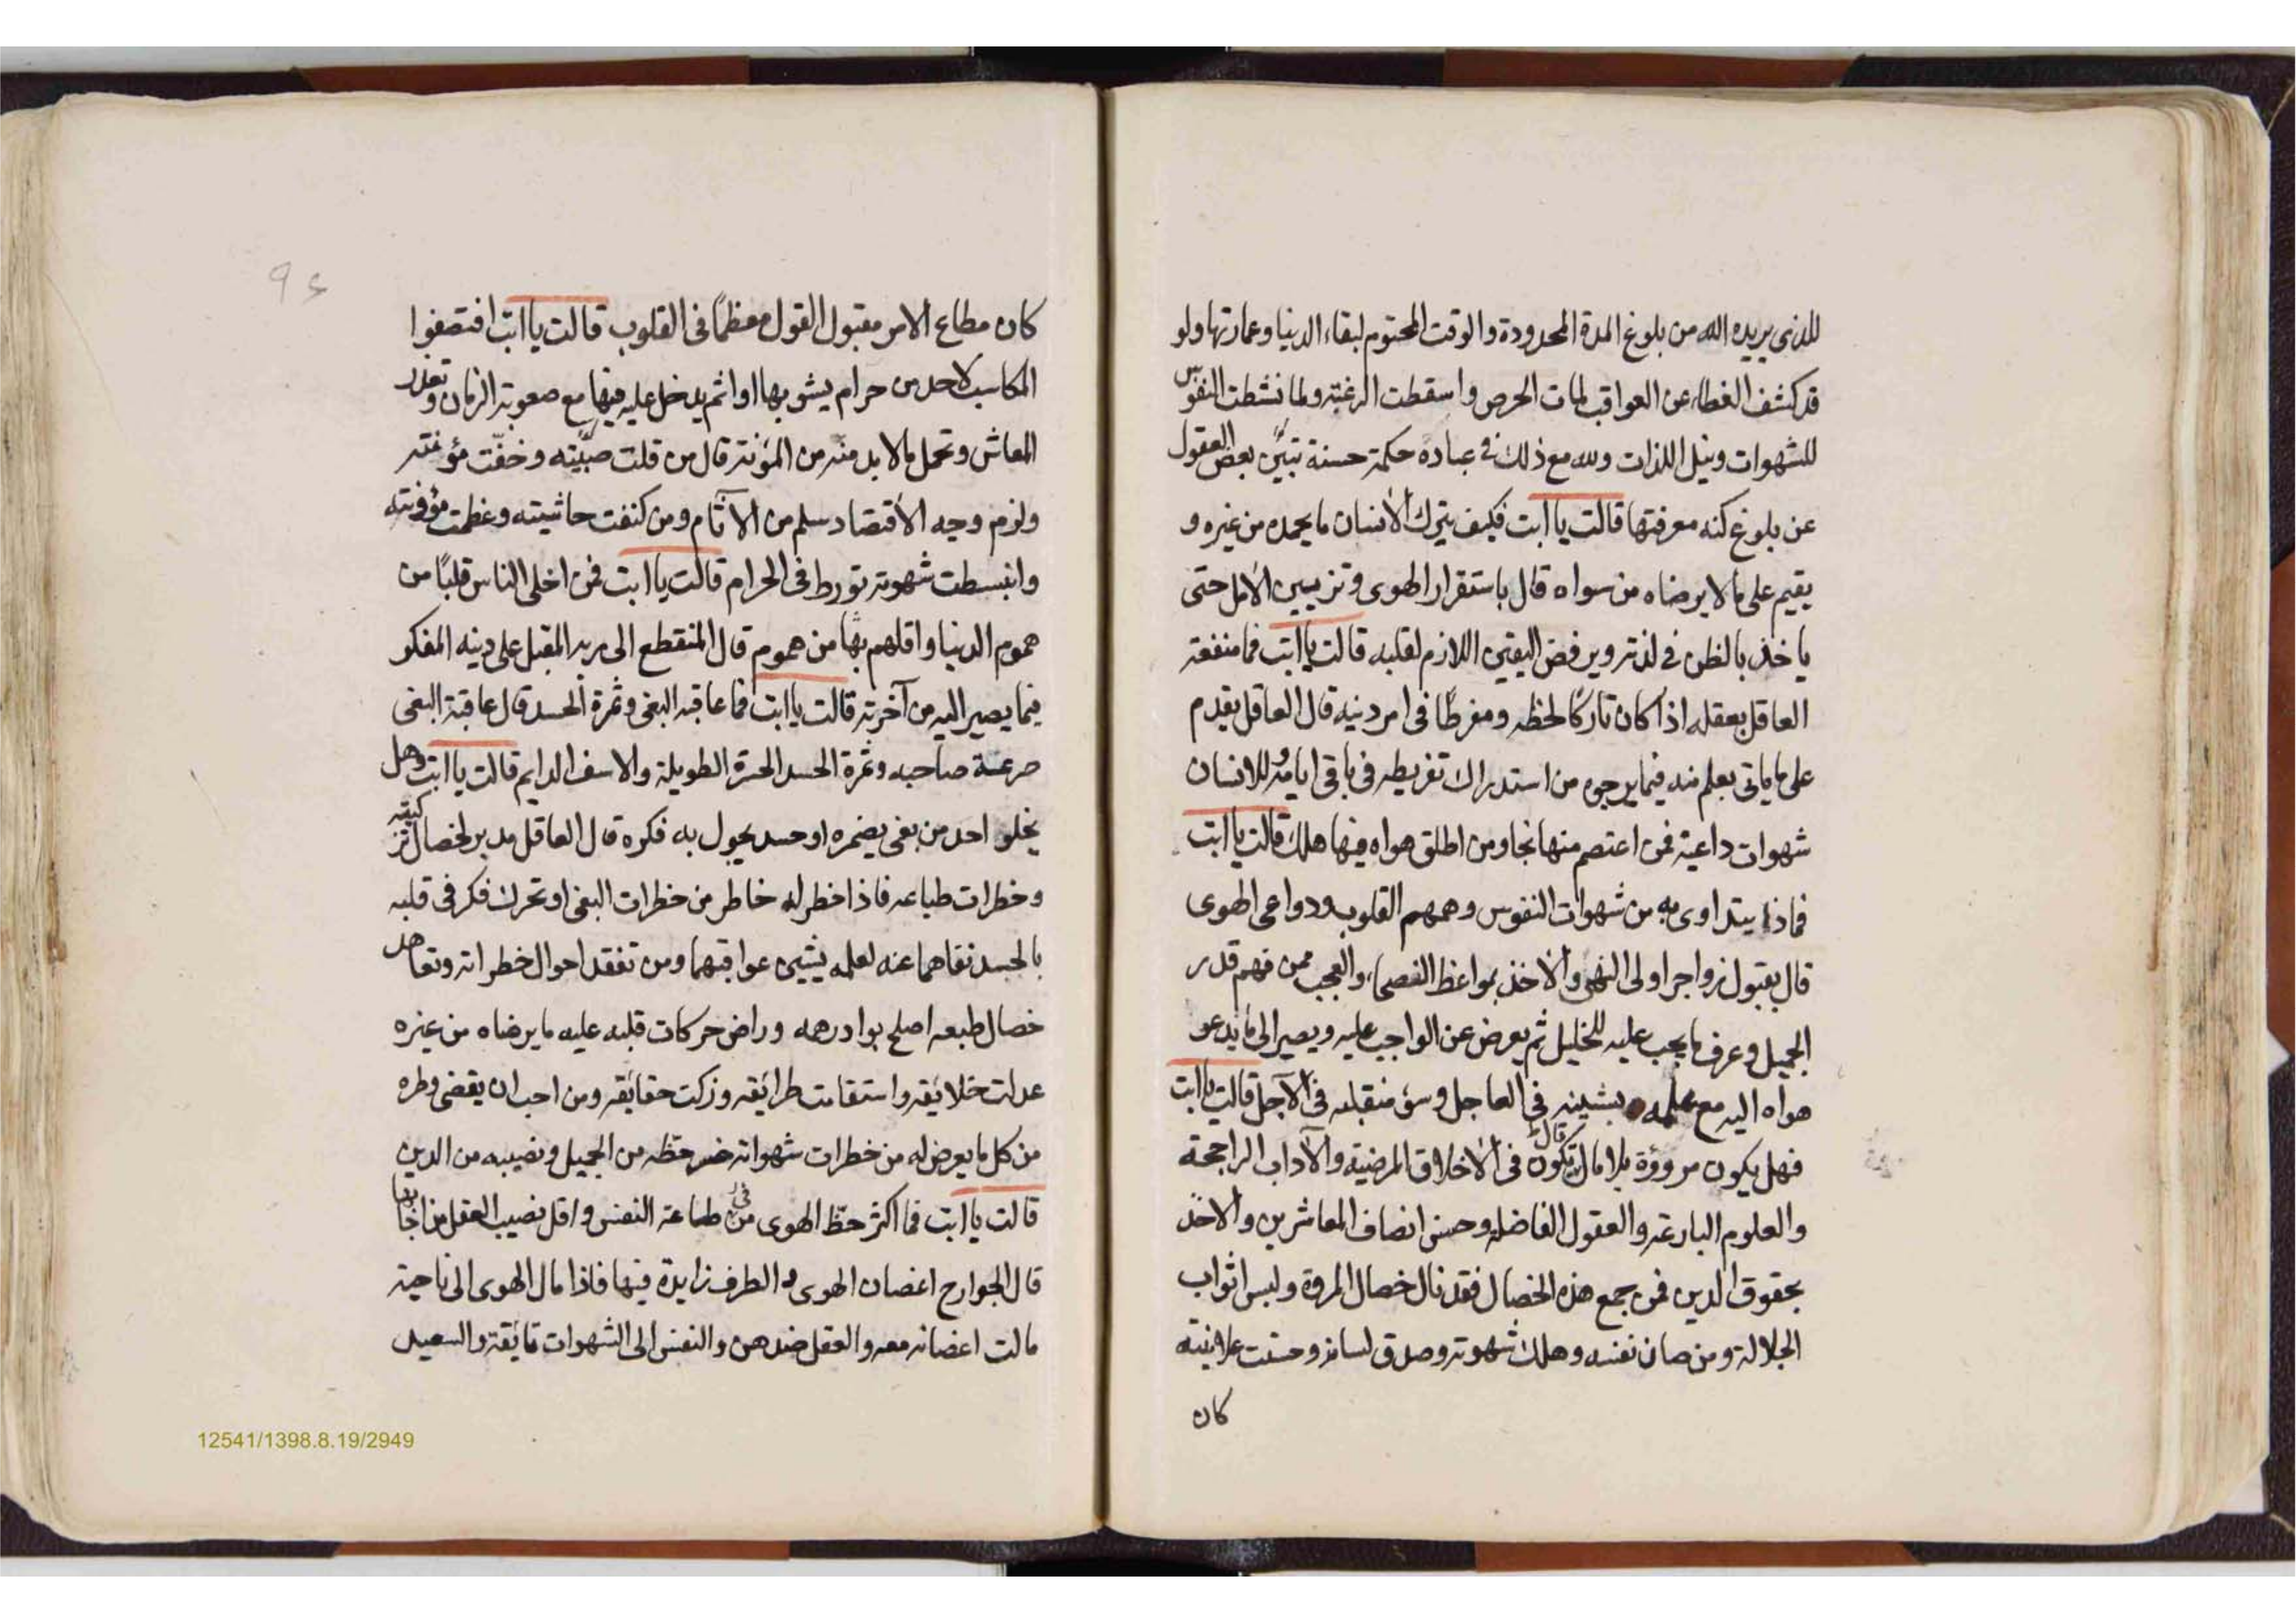 للذى يريده الله من بلوغ المدة المحدودة والوقت المحتوم لبقاء الدنيا وعمارتها ولو
قد كشف الغطاء عن العواقب لمات الحرص واسقطت الرغبة ولما نشطت النفوس
للشهوات ونيل اللذات ولله مع ذلك فى عباده حكمة حسنة بعض العقول
عن بلوغ كنه معرفتها قالت يا ابت فكيف يترك الانسان ما يحمده من غيره و
يقيم على ما لا يرضاه من سواه قال باستقرار الهوى وتزيين الامل حتى
ياخذ بالظن فى لذته ويرفض اليقين اللازم لقلبه قالت يا ابت فما منفعة
العاقل بعقله اذا كان تاركًا لحظه ومفرطًا فى امر دنيه قال العاقل يقدم
على ما ياتى بعلم منه فيما يرجوه من استدراك تفريطه فى باقى ايامه وللانسان
شهوات داعية فمن اعتصم منها نجا ومن اطلق هواه فيها هلك قالت يا ابت
فماذا يتداوى به من شهوات النفوس وهمهم القلوب ودواعى الهوى
قال بقبول زواجر اولى النهى والاخذ بمواعظ الفصحاء والعجب ممن فهم قدر
الجميل وعرف ما يجب عليه للخليل ثم يعرض عن الواجب عليه ويصير الى ما يدعو
هواه اليه مع علمه بشينه فى العاجل وسوء منقلبه فى الآجل قالت يا ابت
فهل يكون مرووة بلا مال قال تكون فى الاخلاق المرضية والآداب الراجحة
والعلوم البارعة والعقول الفاضلة وحسن انصاف المعاشرين والاخذ
بحقوق الدين فمن جمع هذه الخصال فقد نال خصال المروة ولبس اثواب
الجلالة ومن صان نفسه وملك شهوته وصدق لسانه وحسنت علانيته
كان
٩٤
كان مطاع الامر مقبول القول معظمًا فى القلوب قالت يا ابت افتصفوا
المكاسب لاحد من حرام يشوبها او اثم يدخل عليه فيها مع صعوبة الزمان وتعذر
المعاش وتحمل ما لا بد منه من المؤنة قال من قلت وخفّت مؤنته
ولزم وجه الاقتصاد سلم من الآثام ومن كنفت حاشيته وعظمت مؤونته
وانبسطت شهوته تورط فى الحرام قالت يا ابت فمن اخلى الناس قلبًا من
هموم الدنيا واقلهم بها من هموم قال المنقطع الى ربه المقبل على دينه المفكر
فيما يصير اليه من آخرته قالت يا ابت فما عاقبة البغى وثمرة الحسد قال عاقبة البغى
صرعة صاحبه وثمرة الحسد الحسرة الطويلة والاسف الدايم قالت يا ابت وهل
يخلو احد من بغى يضمره او حسد يجول به فكره قال العاقل مدبر لخصال تركيبه
وخطرات طباعه فاذا خطر له خاطر من خطرات البغى او تحرك فكر فى قلبه
بالحسد نفاهما عنه لعلمه بشين عواقبهما ومن تفقد احوال خطراته وتعاهد
خصال طبعه اصلح بوادر همه وراض حركات قلبه عليه ما يرضاه من غيره
عدلت خلايقه واستقامت طرائقه وزكت حقايقه ومن احب ان يقضى وطره
من كل ما يعرض له من خطرات شهواته خسر حظه من الجميل ونصيبه من الدين
قالت يا ابت فما اكثر حظّ الهوى من فى طماعة النفس واقل نصيب العقل من
قال الجوارح اغصان الهوى والطرف زايدة فيها فاذا مال الهوى الى ناحية
مالت اغصانه معه والعقل ضدهن والنفس الى الشهوات تايقة والسعيد
12541/1398.8.19/2949